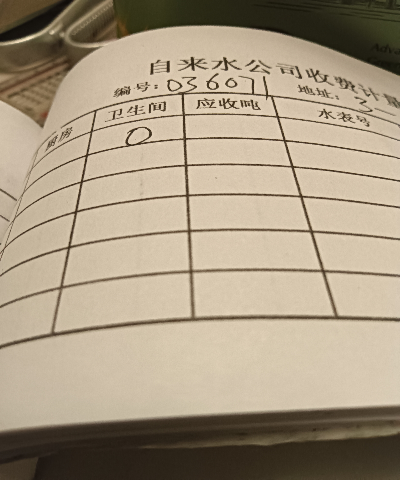 自来水公司收费计量
编号: 036071 地址: 3-
厨房 卫生间 应收吨 水表号
0